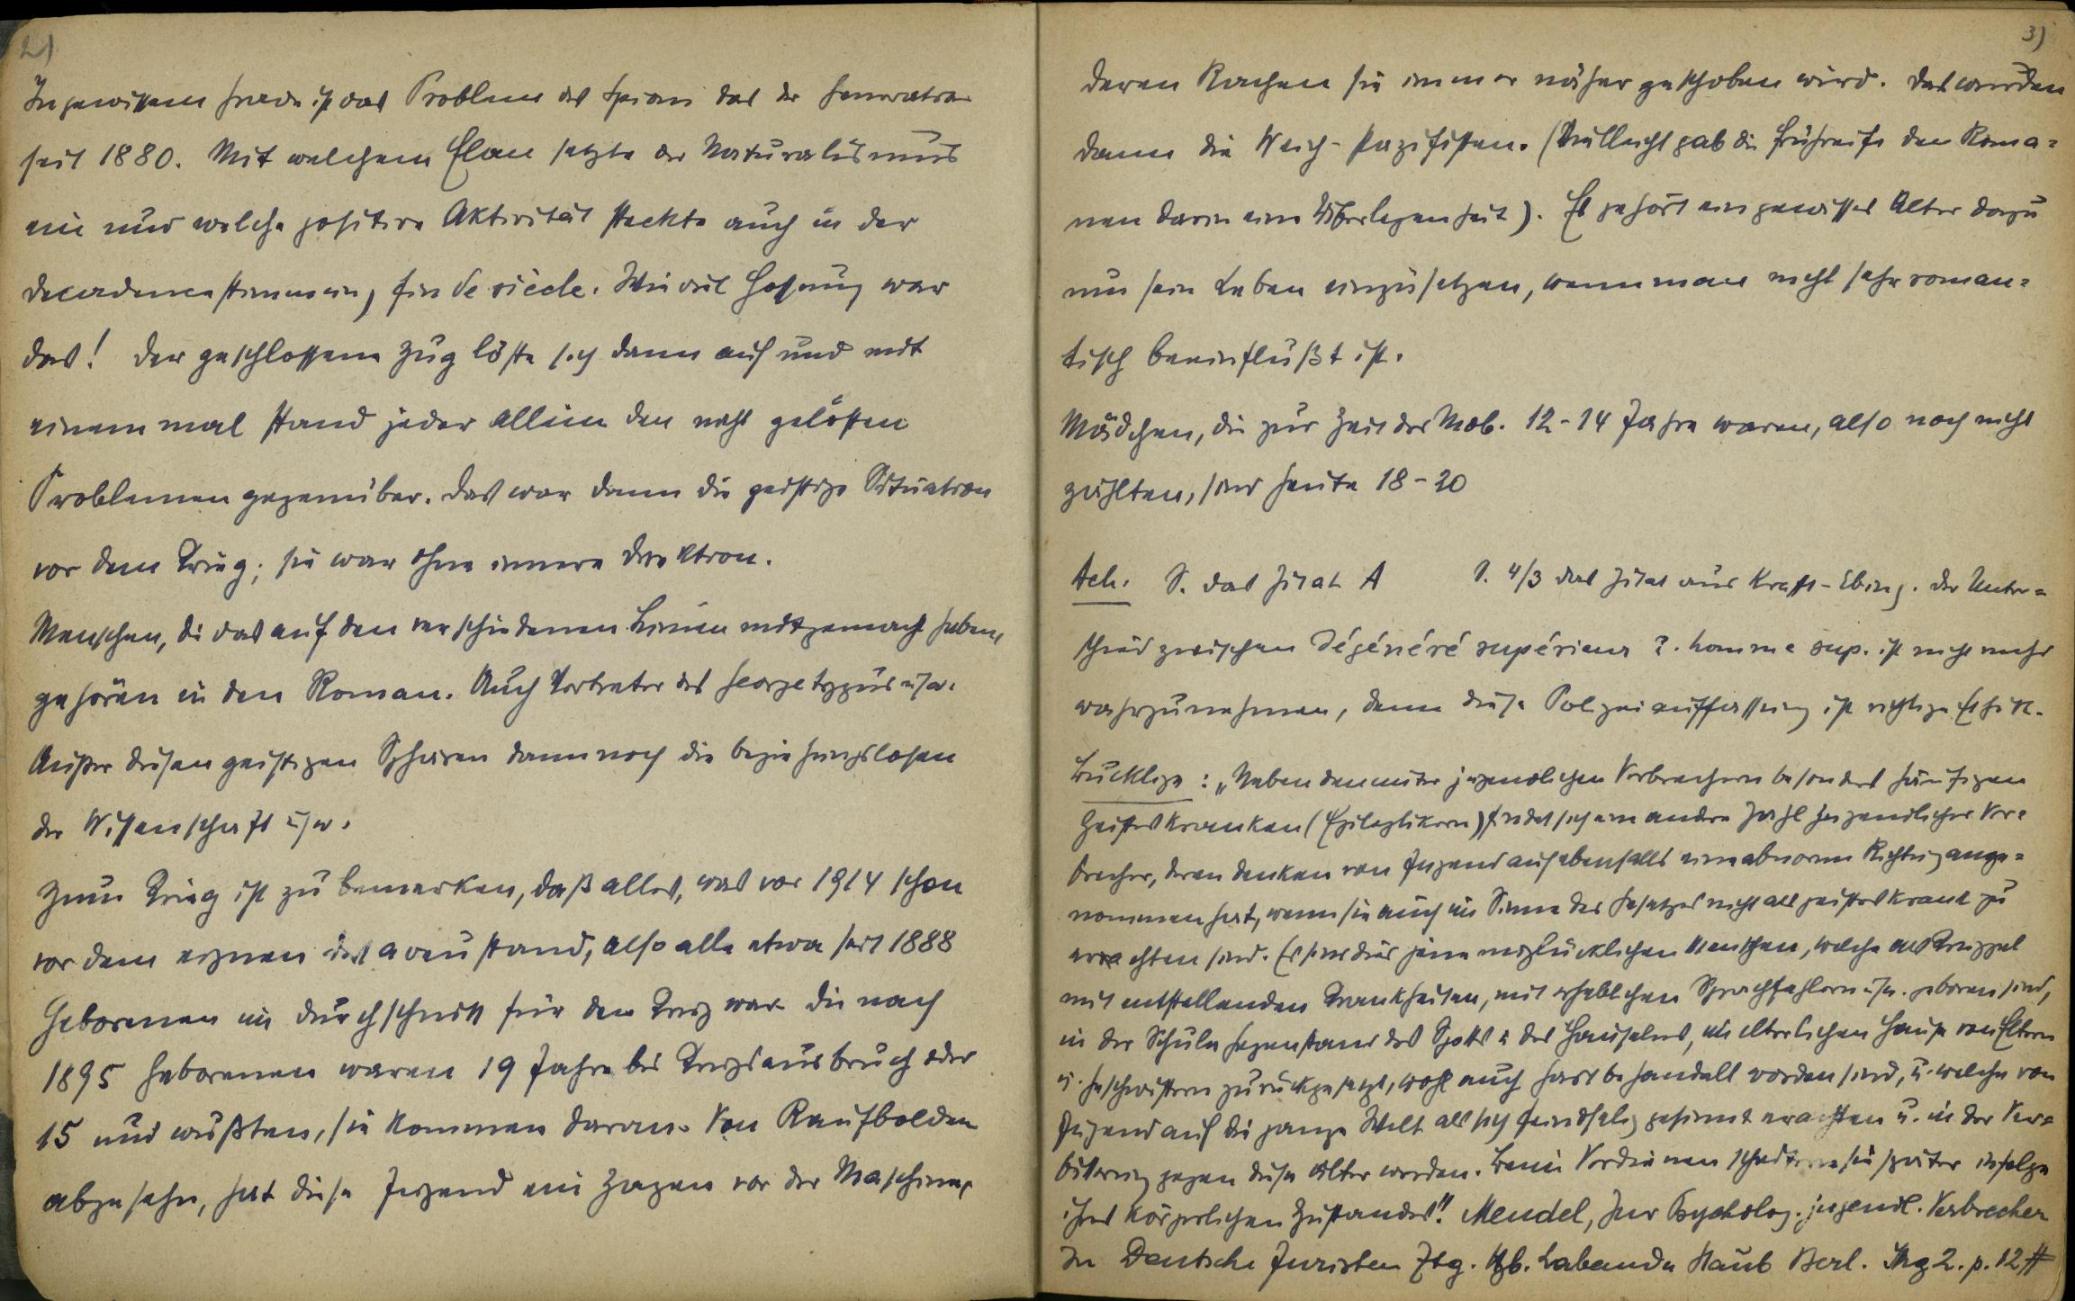 2)
In gewissem Grade ist das Problem des Spions das der Generation
seit 1880. Mit welchem Elan setzte der Naturalismus
ein und welche positive Aktivität steckte auch in der
Decadencestimmung, fin de siècle. Wieviel Hoffnung war
das! Der geschlossene Zug löste sich dann auf und mit
einem mal stand jeder allein den nicht gelösten
Problemen gegenüber. Das war dann die geistige Situation
vor dem Krieg; sie war ohne innere Direktion.
Menschen, die das auf den verschiedenen Linien mitgemacht haben,
gehören in den Roman. Auch Vertreter des Georgetypus usw.
Außer diesen geistigen Sphären dann noch die beziehungslosen
der Wissenschaft usw.
Zum Krieg ist zu bemerken, daß alles, was vor 1914 schon
vor dem eignen stand, also alle etwa seit 1888
Geborenen im Durchschnitt für den Krieg war. Die nach
1895 Geborenen waren 19 Jahre bei Kriegsausbruch oder
15 und wußten, sie kommen daran. Von Raufbolden
abgesehn, hat diese Jugend ein Zagen vor der Maschine,
3)
deren Rachen sie immer näher geschoben wird. Das wurden
dann die Weich-Pazifisten. (Vielleicht gab die Frühreife den Roma=
nen darin eine Überlegenheit). Es gehört ein gewisses Alter dazu
um sein Leben einzusetzen, wenn man nicht sehr roman=
tisch beeinflußt ist.
Mädchen, die zur Zeit der Mob. 12-14 Jahre waren, also noch nicht
zählten, sind heute 18-20
Ach. S. das Zitat A S. 4/3 das Zitat aus Krafft-Ebing. Der Unter=
schied zwischen dégénéré supérieur u. homme sup. ist nicht mehr
wahrzunehmen, denn diese Polizeiauffassung ist richtige Ethik.
Bucklige: „Neben den unter jugendlichen Verbrechern besonders häufigen
Geisteskranken (Epileptikern) findet sich eine andre Zahl jugendlicher Ver=
brecher, deren Denken von Jugend auf ebenfalls eine abnorme Richtung ange=
nommen hat, wenn sie auch im Sinne des Gesetzes nicht als geisteskrank zu
erachten sind. Es sind dies jene unglücklichen Menschen, welche als Krüppel
mit entstellenden Krankheiten, mit erheblichen Sprachfehlern usw. geboren sind,
in der Schule Gegenstand des Spotts u. des Hänselns, im elterlichen Hause von Eltern
u. Geschwistern zurückgesetzt, wohl auch hart behandelt worden sind, u. welche von
Jugend auf die ganze Welt als sich feindselig gesinnt erachten u. in der Ver=
bitterung gegen diese älter werden. Beim Verdienen scheitern sie später infolge
ihres körperlichen Zustandes“. Mendel, Zur Psycholog. jugendl. Verbrecher
In Deutsche Juristen Ztg. Hgb. Laband Staub Berl. Jhg 2. p. 12 ff